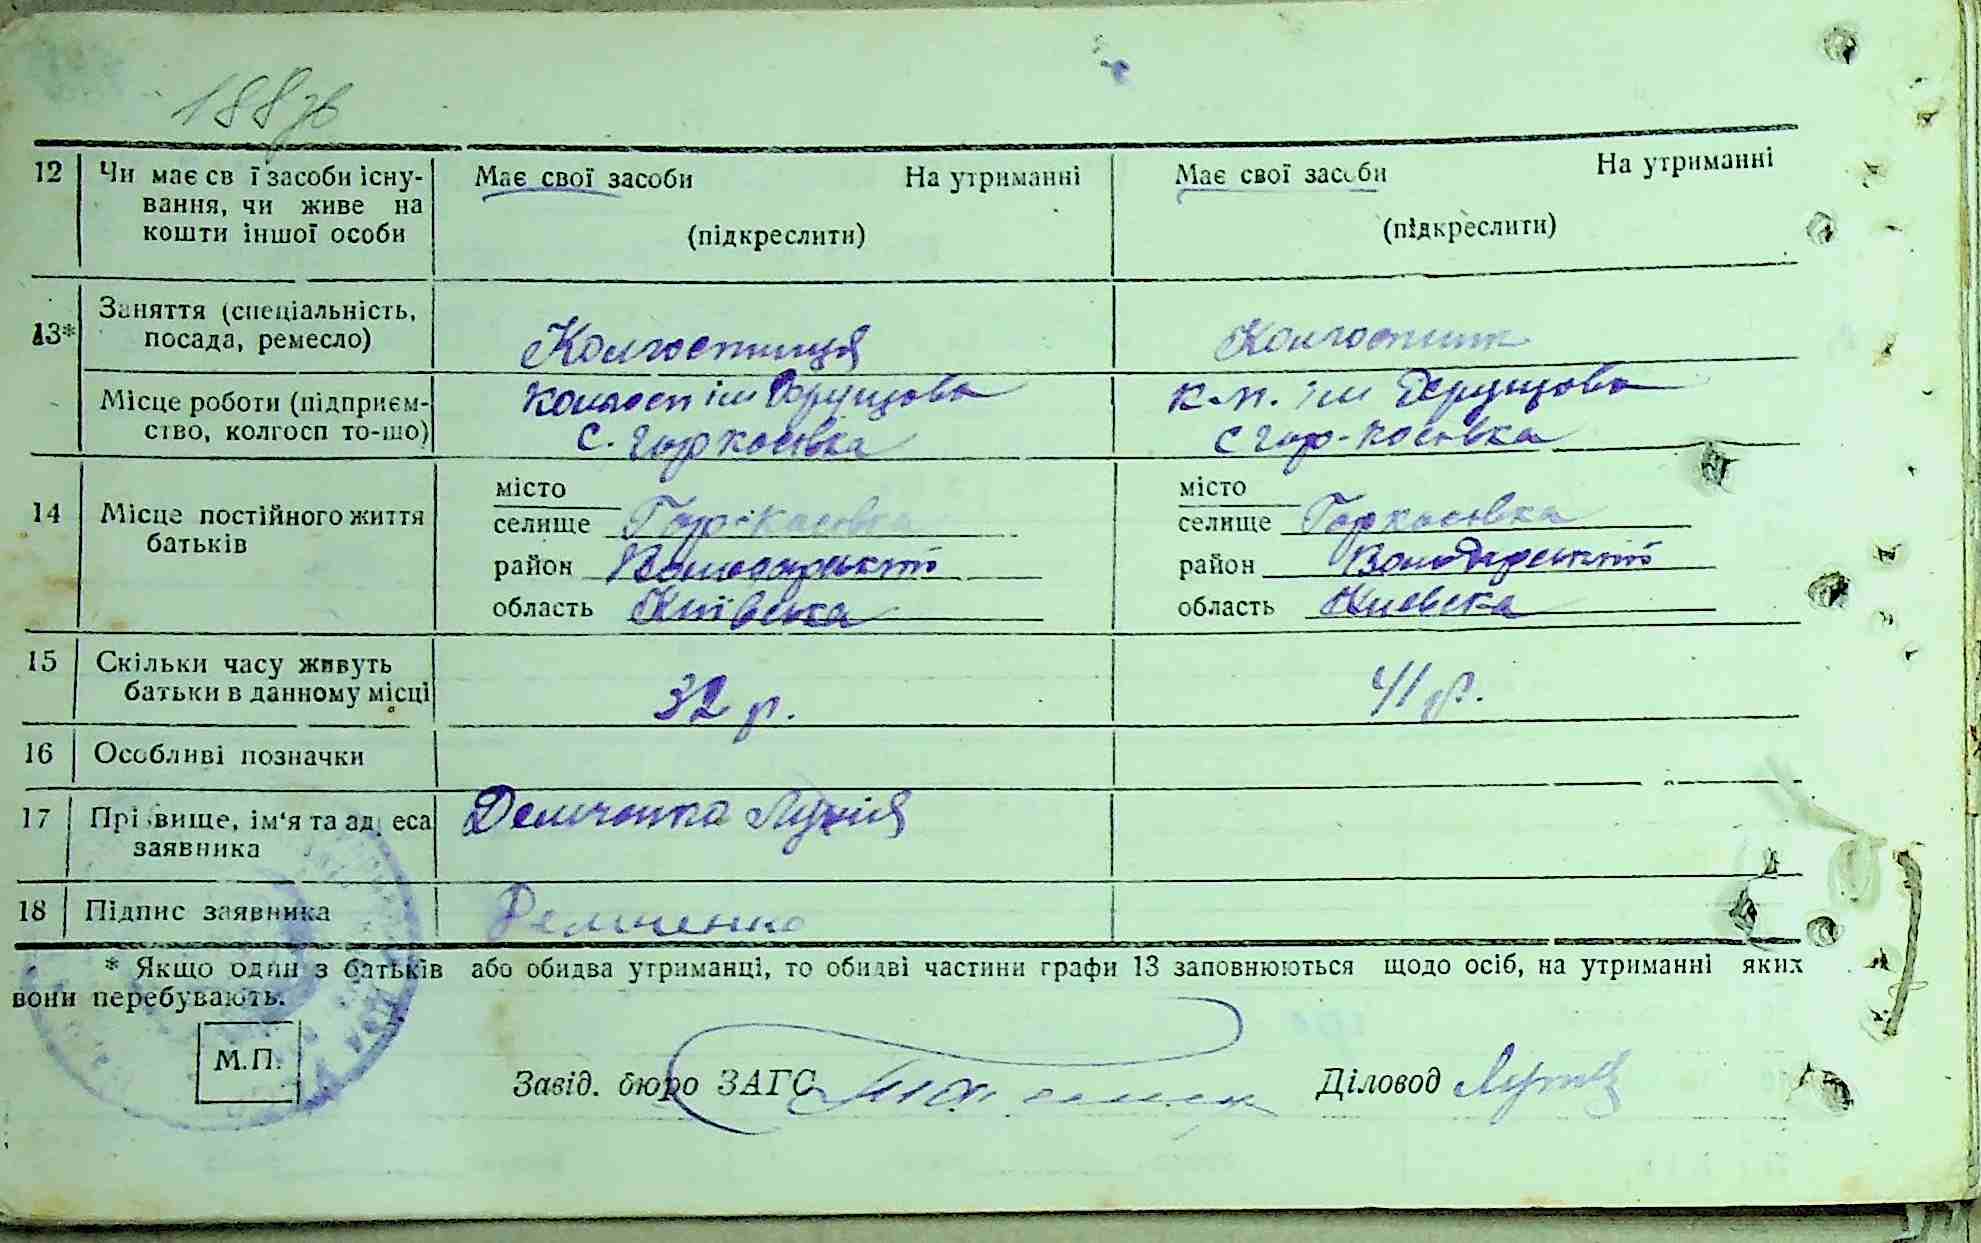 188зв
12 Чи має св ї засоби існу- Має свої засоби На утриманні Має свої засоби На утриманні
вання, чи живе на
кошти іншої особи (підкреслити) (підкреслити)
13* Заняття (спеціальність,
посада, ремесло) Колгоспниця Колгоспник
Місце роботи (підприєм- Колгосп ім Хрущова к-п. ім Хрущова
ство, колгосп то-що) с. Гор косівка с Гор-косівка
місто місто
14 Місце постійного життя селище Гор-косівка селище Горкосівка
батьків район Володарський район Володарський
область Київська область Киевска
15 Скільки часу живуть
батьки в данному місці 32 р. 41 р.
16 Особливі позначки
17 Прізвище, ім'я та адреса Демченко
заявника
18 Підпис заявника Демченко
* Якщо один з батьків або обидва утриманці, то обидві частини графи 13 заповнюються щодо осіб, на утриманні яких
вони перебувають.
М.П.
Завід. бюро ЗАГС Діловод